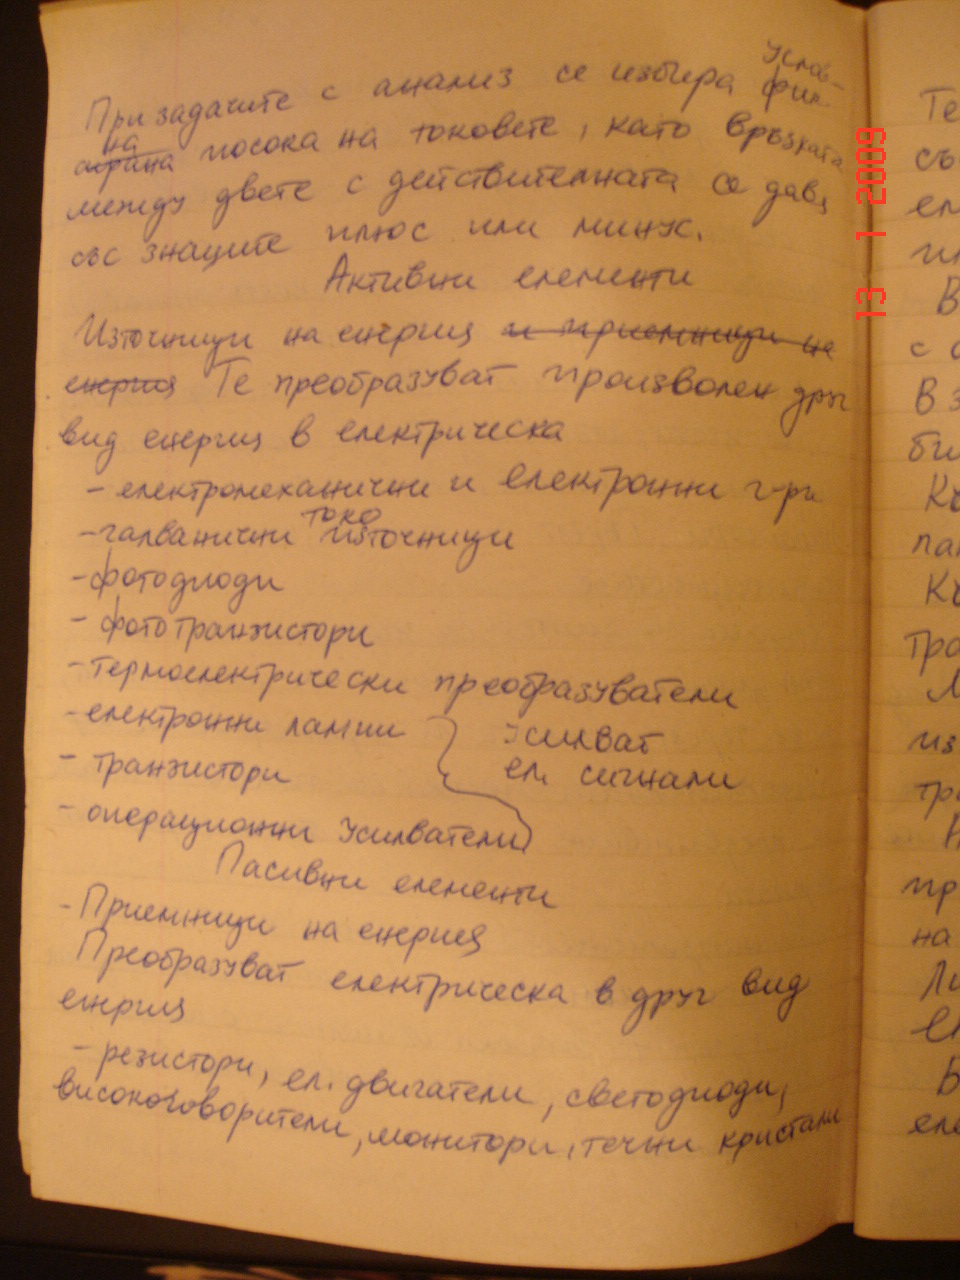 При задачите с анализ се избира услов-
на посока на токовете, като връзката
между двете с действителната се дава
със знаците плюс или минус.
Активни елементи
Източници на енергия и приемници на
енергия Те преобразуват произволен друг
вид енергия в електрическа
- електромеханични и електронни г-ри
- галванични токо източници
- фотодиоди
- фототранзистори
- термоелектрически преобразуватели
- електронни лампи
усилват
- транзистори
ел. сигнали
- операционни усилватели
Пасивни елементи
- Приемници на енергия
Преобразуват електрическа в друг вид
енергия
- резистори, ел. двигатели, светодиоди,
високоговорители, монитори, течни кристали
13 1 2009
Те
съ
ел
В
с
В з
би
Къ
па
Къ
тра
из
тр
пр
на
Ли
Б
еле